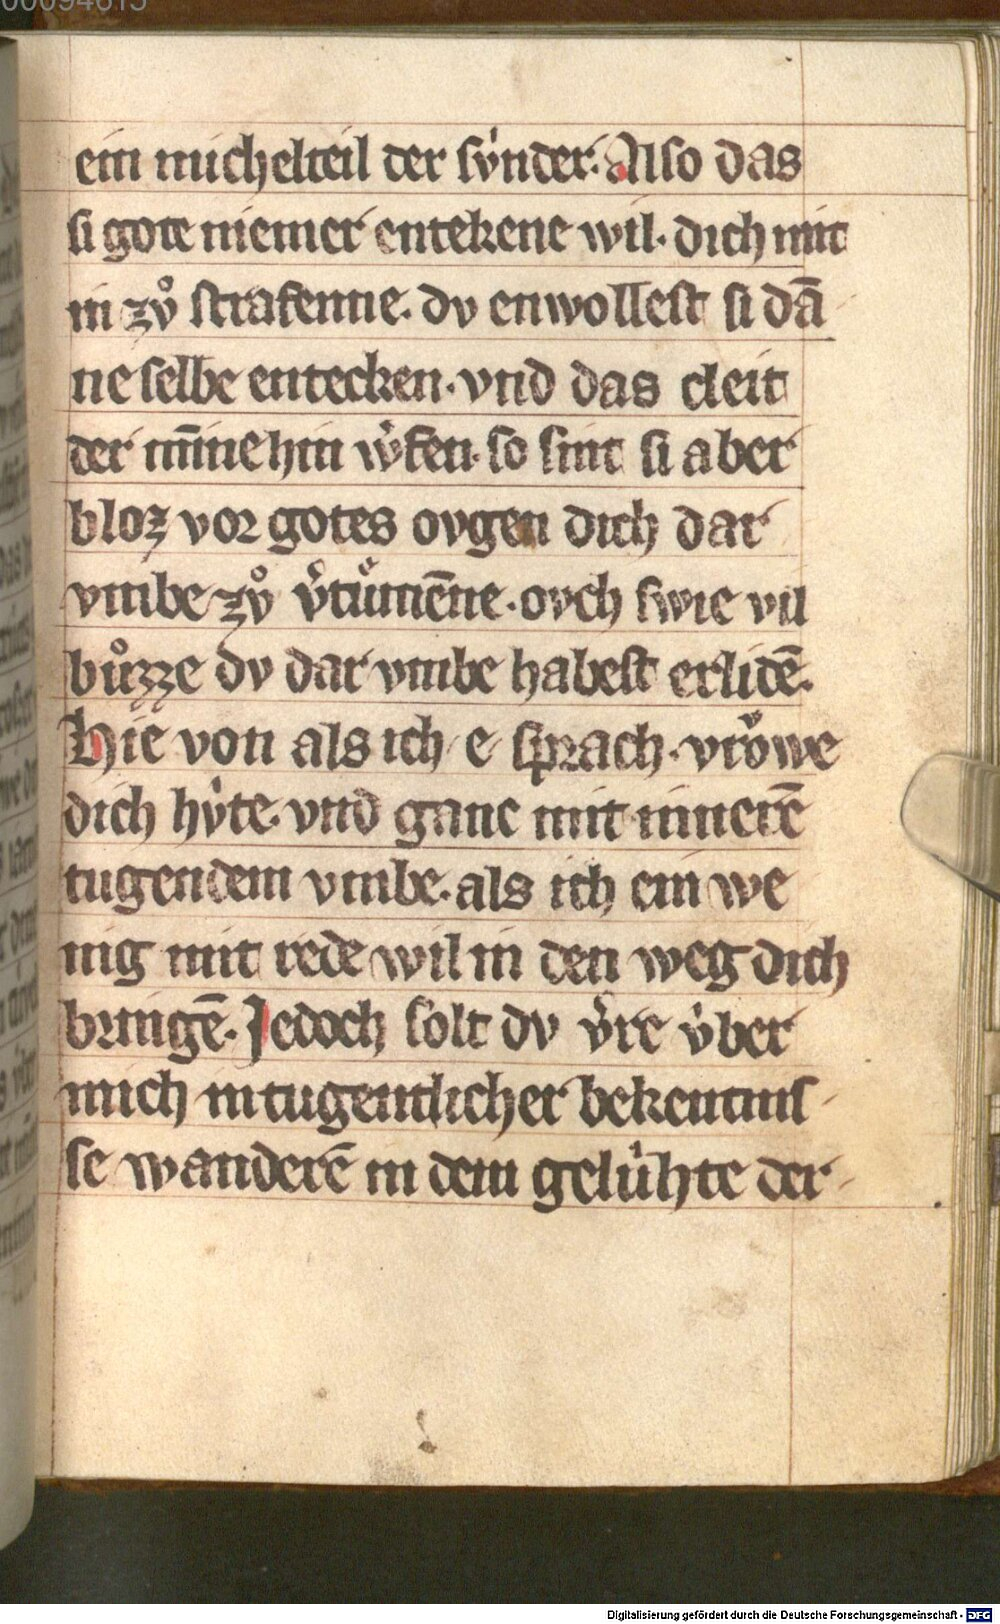 00094615
ein michelteil der sv́nder. Also das
si gote niemer entekene wil. dich mit
in zvͦ strafenne. dv enwollest si dā
ne selbe entecken. vnd das cleit
der m̄ine hin w̓fen. so sint si aber
bloz vor gotes ovgen dich dar
vmbe zvͦ v̓tuͤmēne. ovch swie vil
buͦzze dv dar vmbe habest erlidē.
Hie von als ich e sprach. vroͮwe
dich hv́te. vnd ganc mit innerē
tugendem vmbe. als ich ein we
nig mit rede wil in den weg dich
bringē. Jedoch solt dv v̓re v́ber
mich in tugentlicher bekentnis
se wanderē in dem gelúhte der
Digitalisierung gefördert durch die Deutsche Forschungsgemeinschaft - DFG